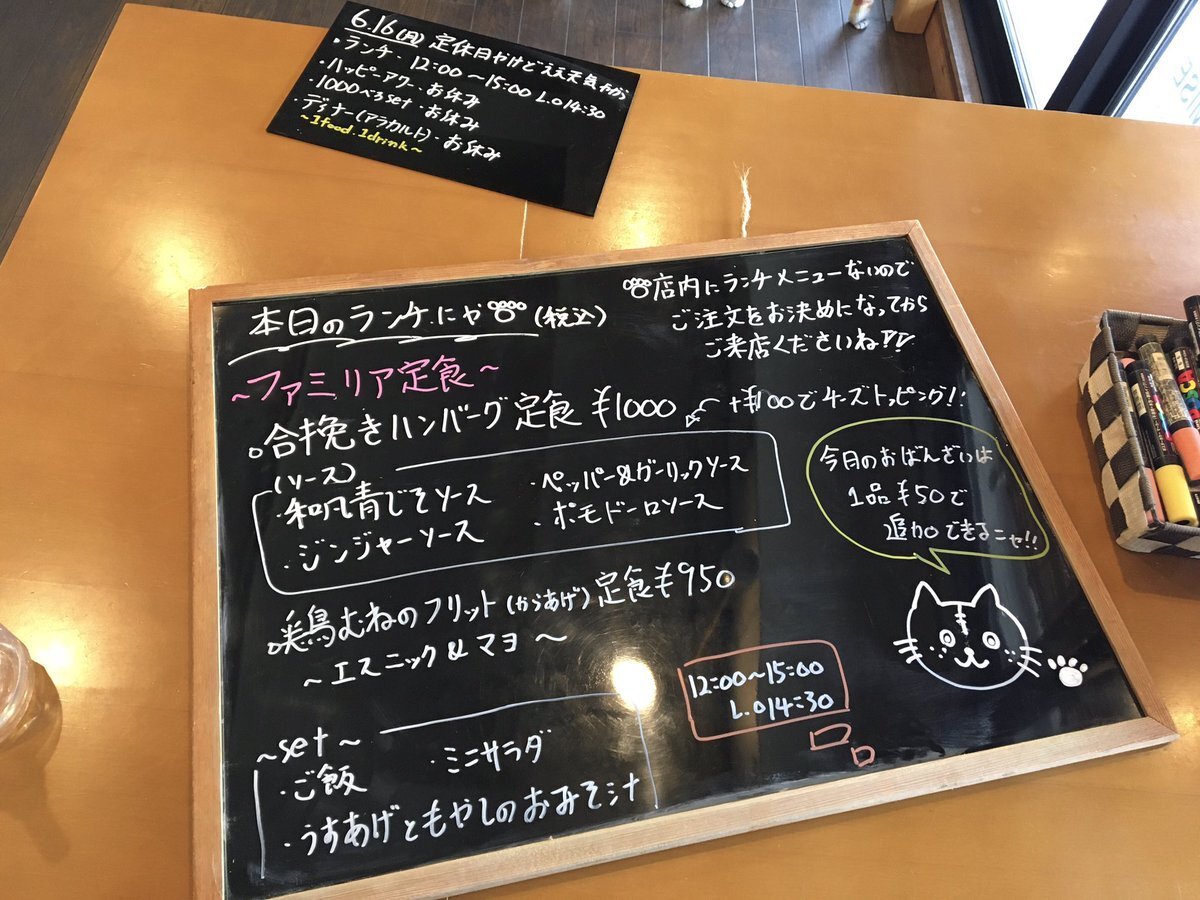 6.16(月) 定休日やけどええ天気やから
・ランチ・12:00〜15:00 L.O14:30
・ハッピーアワー・お休み
・1000べろset・お休み
・ディナー(アラカルト)・お休み
~1food.1drink~
本日のランチにゃ(税込)
店内にランチメニューないので
ご注文をお決めになってから
ご来店くださいね
~ファミリア定食~
。合挽きハンバーグ定食 ¥1000
+¥100でチーズトッピング!!
(ソース)
・和風青じそソース
・ペッパー&ガーリックソース
・ジンジャーソース
・ポモドーロソース
今日のおばんざいは
1品¥50で
追加できるニャ!!
鶏むねのフリット(からあげ)定食¥950
~エスニック&マヨ~
12:00~15:00
L.O14:30
~set~
・ご飯
・ミニサラダ
・うすあげともやしのおみそ汁